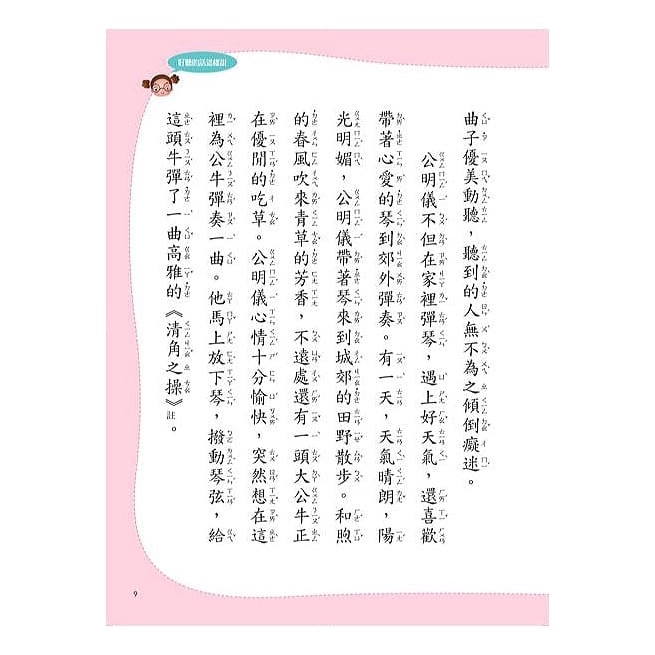 好聽的話這樣說
曲子優美動聽，聽到的人無不為之傾倒癡迷。
公明儀不但在家裡彈琴，遇上好天氣，還喜歡
帶著心愛的琴到郊外彈奏。有一天，天氣晴朗，陽
光明媚，公明儀帶著琴來到城郊的田野散步。和煦
的春風吹來青草的芳香，不遠處還有一頭大公牛正
在優閒的吃草。公明儀心情十分愉快，突然想在這
裡為公牛彈奏一曲。他馬上放下琴，撥動琴弦，給
這頭牛彈了一曲高雅的《清角之操》註。
9